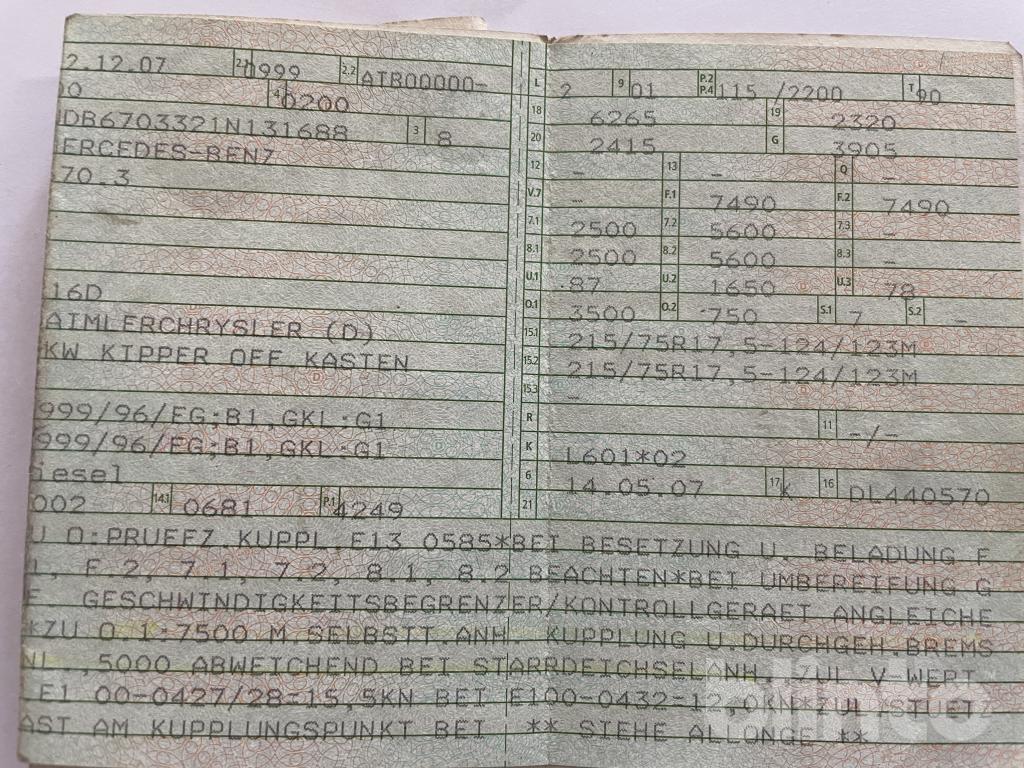 2.12.07 2.1 0999 2.2 ATB00000-
00 4 0200
DB6703321N131688 3 8
ERCEDES-BENZ
70.3
16D
AIMLERCHRYSLER (D)
KW KIPPER OFF.KASTEN
999/96/EG;B1,GKL:G1
999/96/EG;B1,GKL:G1
iesel
002 14.1 0681 P.1 4249
L 2 9 01 P.2 P.4 115 /2200 T 90
18 6265 19 2320
20 2415 G 3905
12 - 13 - Q -
V.7 - F.1 7490 F.2 7490
7.1 2500 7.2 5600 7.3 -
8.1 2500 8.2 5600 8.3 -
U.1 87 U.2 1650 U.3 78
O.1 3500 O.2 750 S.1 7 S.2 -
15.1 215/75R17,5-124/123M
15.2 215/75R17,5-124/123M
15.3 -
R 11 -/-
K L601*02
6 14.05.07 17 k 16 DL440570
21
U O:PRUEFZ.KUPPL.E13 0585*BEI BESETZUNG U. BELADUNG F
1, F.2, 7.1, 7.2, 8.1, 8.2 BEACHTEN*BEI UMBEREIFUNG G
F. GESCHWINDIGKEITSBEGRENZER/KONTROLLGERAET ANGLEICHE
*ZU O.1:7500 M.SELBSTT.ANH. KUPPLUNG U.DURCHGEH.BREMS
NL.,5000 ABWEICHEND BEI STARRDEICHSELANH. ZUL V-WERT
E1 00-0427/28-15,5KN BEI E100-0432-12,0KN*ZUL STUETZ
AST AM KUPPLUNGSPUNKT BEI ** SIEHE ALLONGE **
blinto